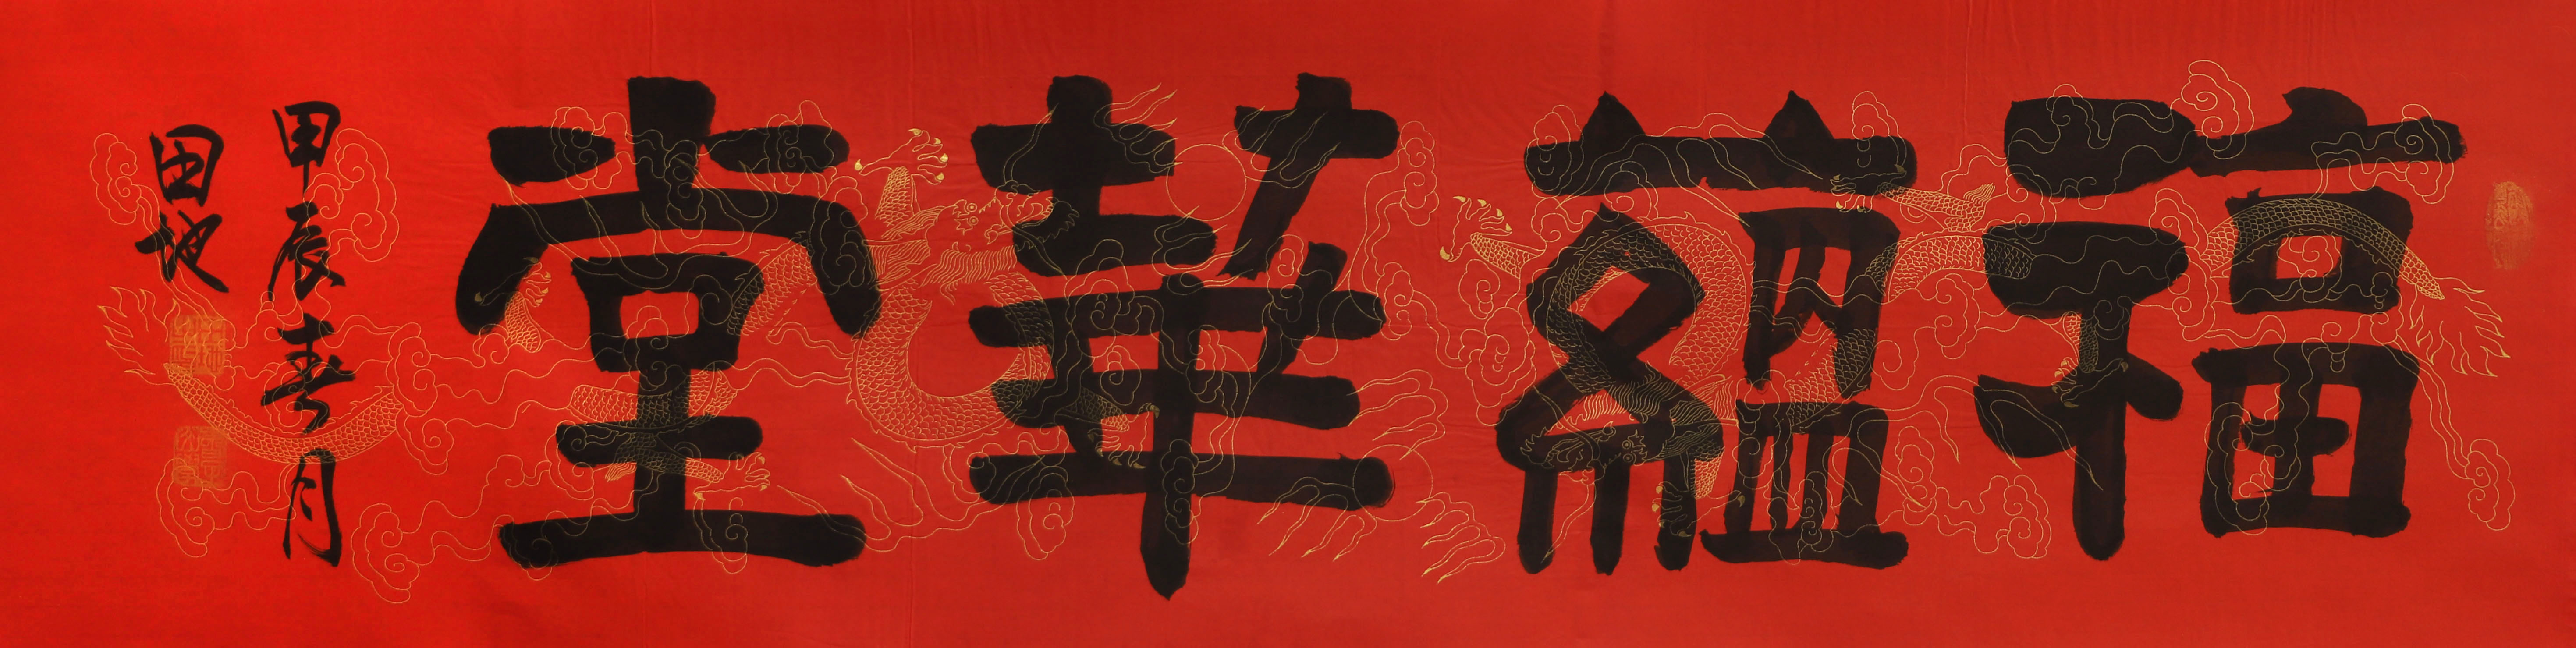 福蕴華堂
甲辰春月
田地